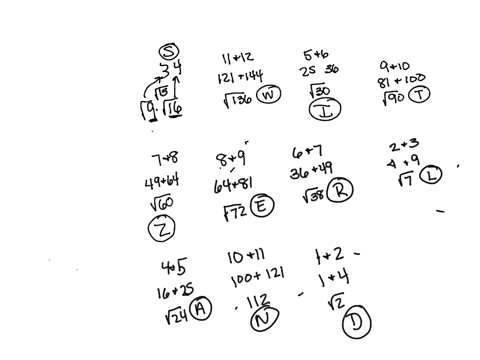 S
3 4
√15
√9 · √16
11+12
121+144
√136 W
5+6
25 36
√30
I
9+10
81+100
√90 T
7+8
49+64
√60
Z
8+9
64+81
√72 E
6+7
36+49
√38 R
2+3
4+9
√7 L
4+5
16+25
√24 A
10+11
100+121
112
N
1+2
1+4
√2
D